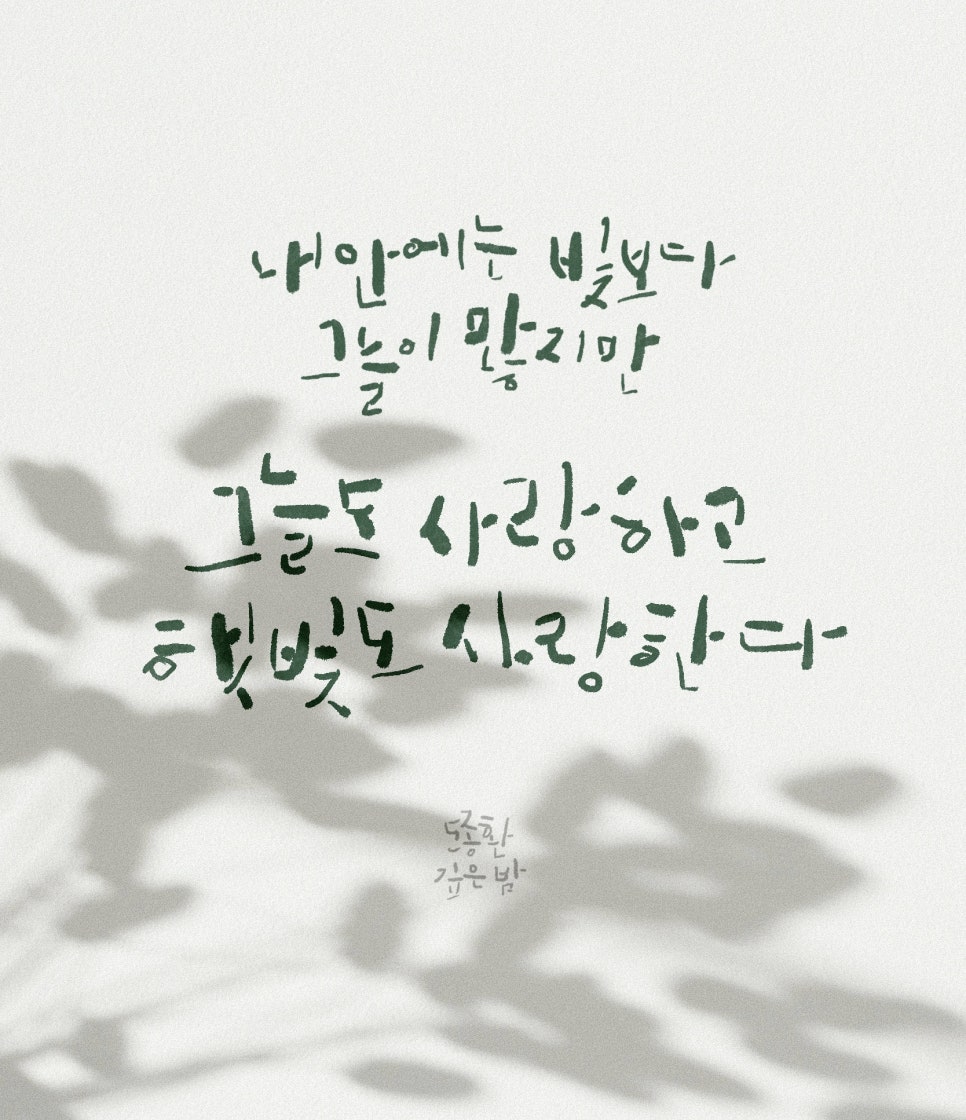 내 안에는 빛보다
그늘이 많지만
그늘도 사랑하고
햇빛도 사랑한다
도종환
깊은 밤